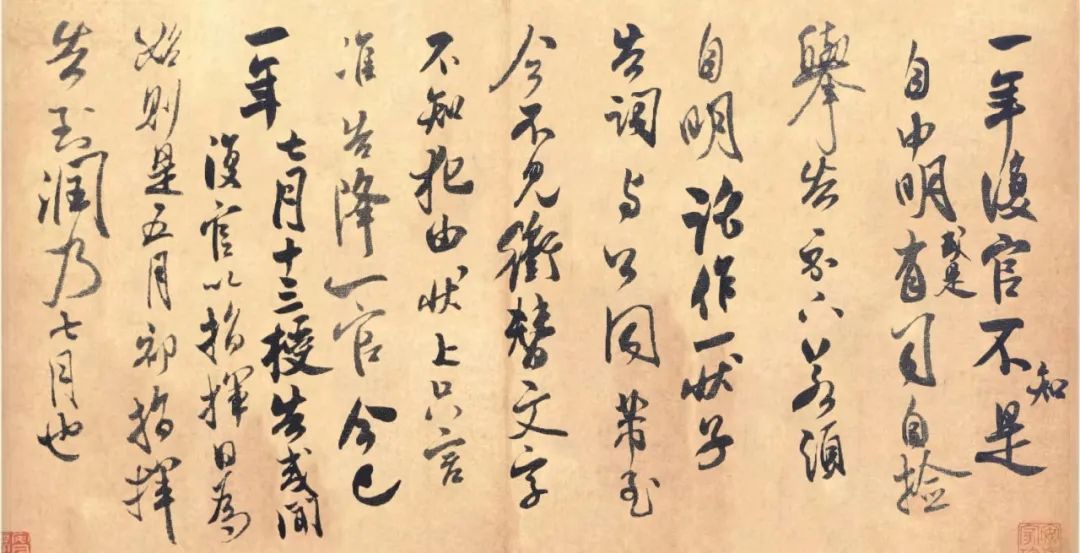 一年復官不知是
自申明或是有司自檢
舉告示下若須
自明作一狀子
告詞与公同芾至
今不見衝替文字
不知犯由狀上只言
准告降一官今已
一年七月十三授告或聞
復官以指揮日為
始則是五月初指揮
告到潤乃七月也